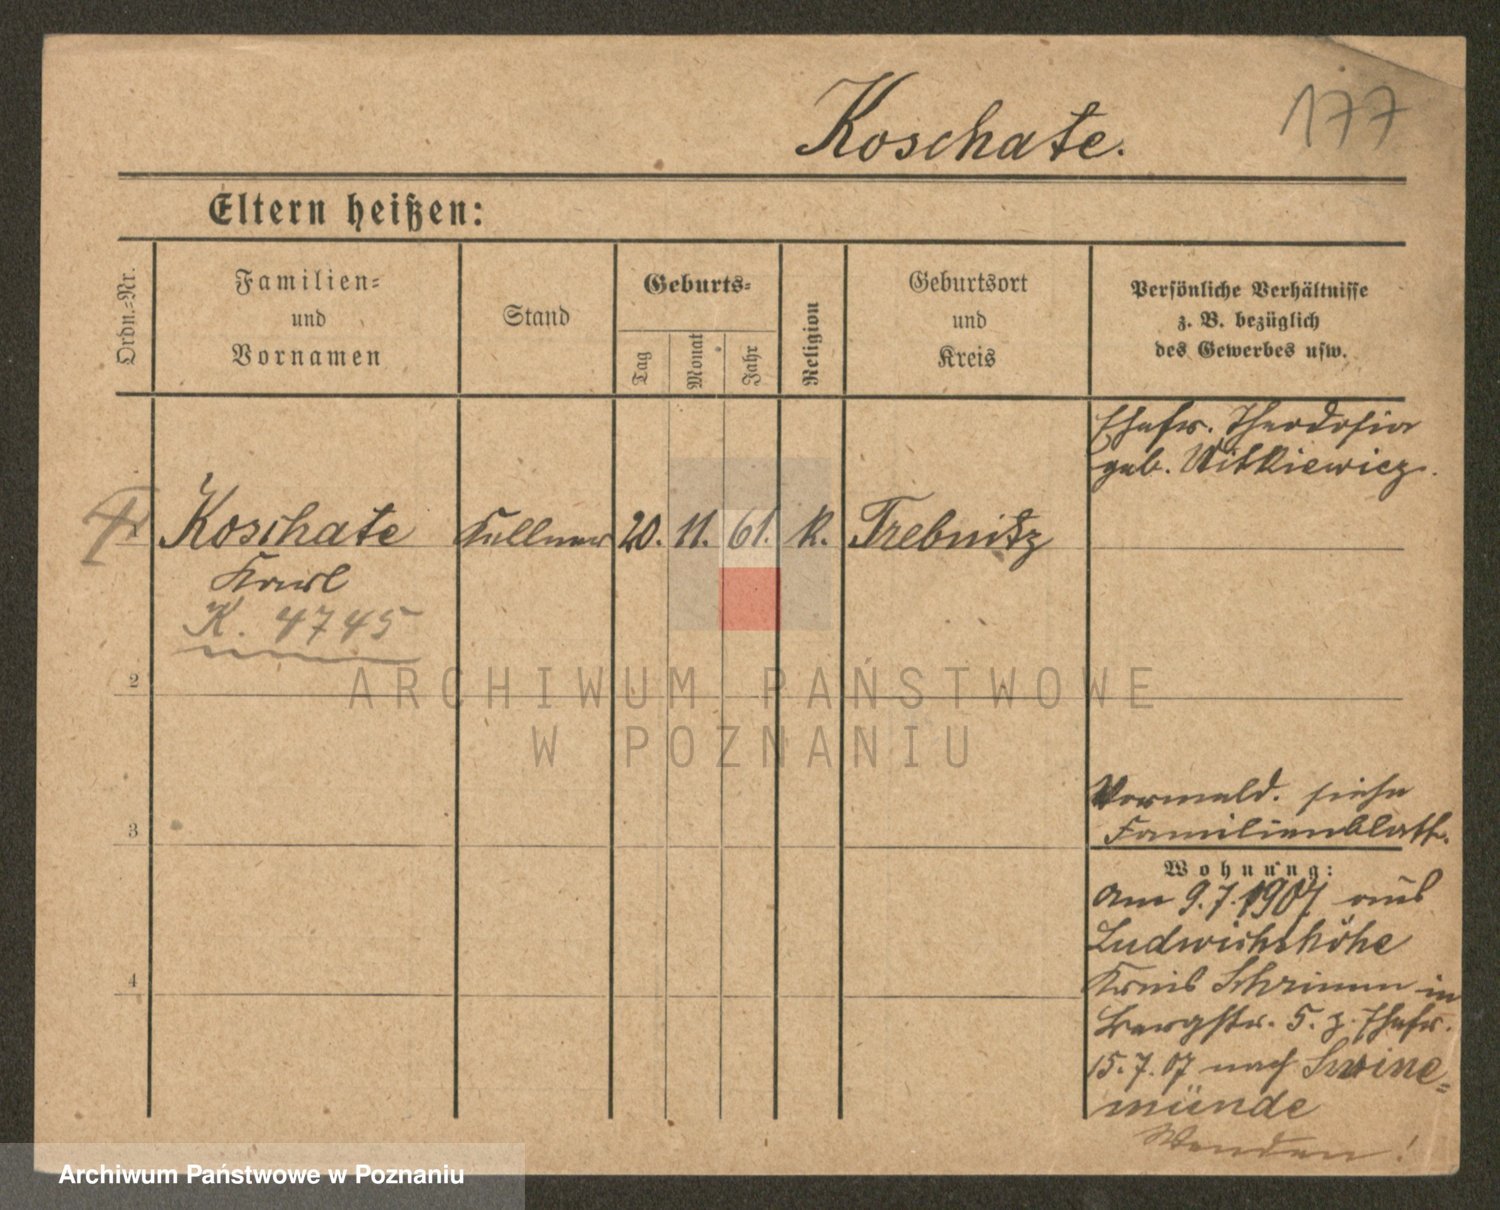 177
Koschate.
Eltern heißen:
Ordn.-Nr.
Familien-
und
Vornamen
Stand
Geburts-
Tag
Monat
Jahr
Religion
Geburtsort
und
Kreis
Persönliche Verhältnisse
z. B. bezüglich
des Gewerbes usw.
Ehefr. Theodosia
geb. Witkiewicz.
Koschate Kellner 20. 11. 61. k. Trebnitz
Karl
K. 4745
2
3
4
Vormeld. siehe
Familienblatt.
Wohnung:
am 9.7.1907 aus
Ludwichshöhe
Kreis Schrimm in
Bergstr. 5. z. Ehefr.
15.7.07 nach Swine-
münde
Wenden!
ARCHIWUM PAŃSTWOWE
W POZNANIU
Archiwum Państwowe w Poznaniu